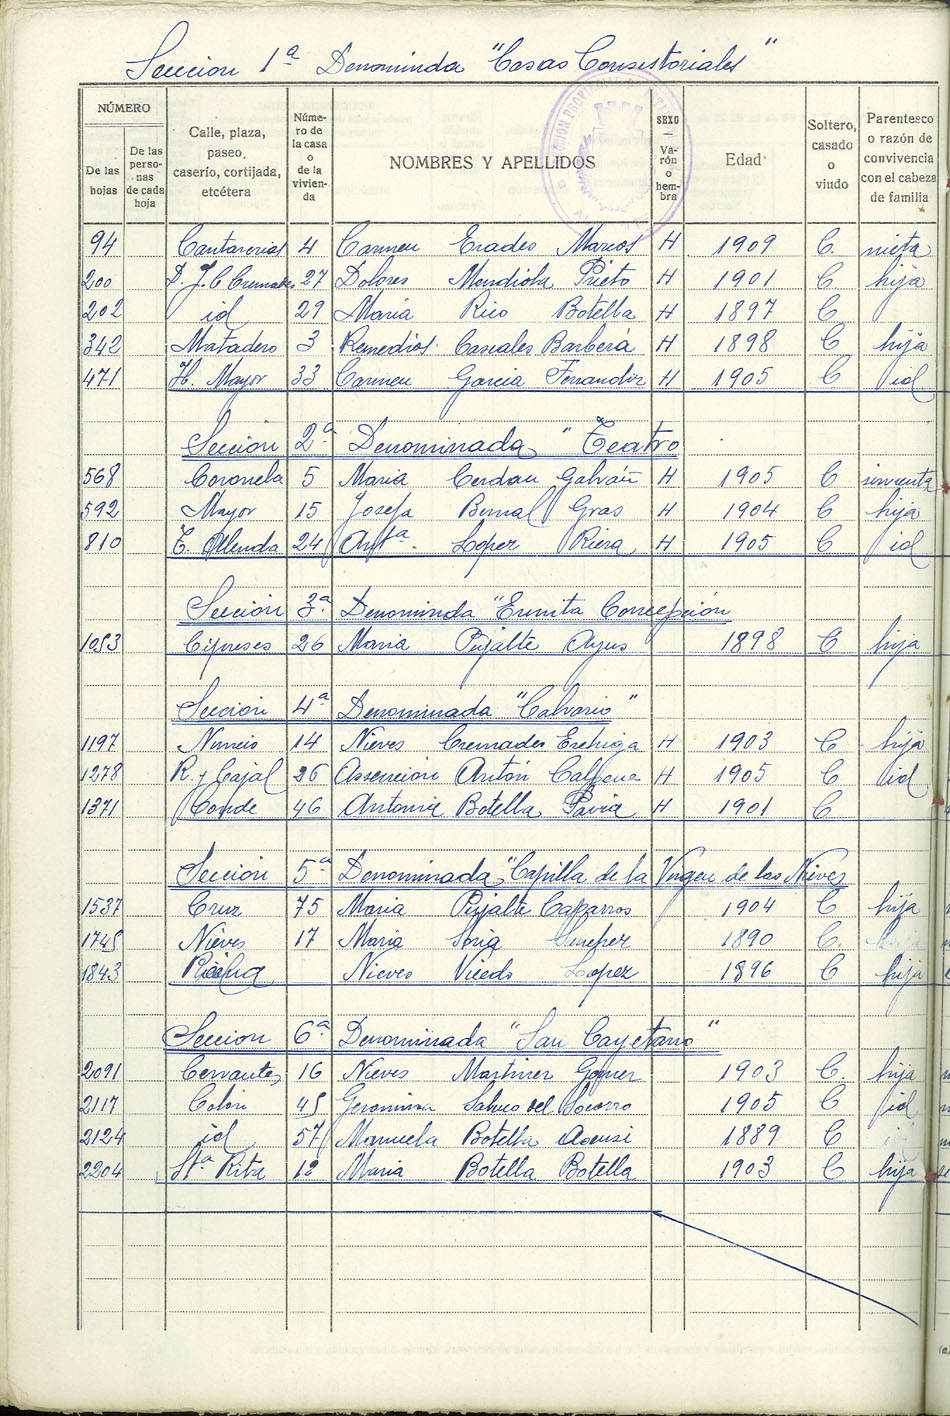 Seccion 1ª Denominda "Casas Consistoriales"
NÚMERO
De las hojas
De las perso- nas de cada hoja
Calle, plaza, paseo, caserío, cortijada, etcétera
Núme- ro de la casa o de la vivien- da
NOMBRES Y APELLIDOS
SEXO — Va- rón o hem- bra
Edad
Soltero, casado o viudo
Parentesco o razón de convivencia con el cabeza de familia
94 Cantarerias 4 Carmen Erades Marcos H 1909 C. nieta
200 D. J. C Cremades 27 Dolores Mondiola Prieto H 1901 C hija
202 id 29 Maria Rico Botella H 1897 C
342 Matadero 3 Remedios Cascales Barberá H 1898 C hija
471 H. Mayor 33 Carmen Garcia Ferrandiz H 1905 C id
Sección 2ª Denominada "Teatro
568 Coronela 5 Maria Cerdan Galvañ H 1905 C sirvienta
592 Mayor 15 Josefa Bernal Gras H 1904 C hija
810 24 Antª Lopez Riera H 1905 C id
Sección 3ª Denominda "Ermita Concepción
1053 Cipreses 26 Maria Pujalte 1898 C hija
Seccion 4ª Denominada "Calvario"
1197 14 Nieves Cremades H 1903 C hija
1278 R. y Cajal 26 Assención Antón Calpena H 1905 C id
1371 Conde 46 Antonia Botella Pavia H 1901 C
Sección 5ª Denominada "Capilla de la Virgen de las Nieves
1537 Cruz 75 Maria Pujalte Caparros 1904 C hija
1745 Nieves 17 Maria Soria 1890 C.
1843 Nieves Vicedo Lopez 1896 C hija
Seccion 6ª Denominada "San Cayetano"
2091 Cervantes 16 Nieves Martinez Gomez 1903 C. hija
2117 Colón 45 Geronima Salvo del Socorro 1905 C id
2124 id 57 Manuela Botella Asensi 1889 C
2204 Stª Rita 12 Maria Botella Botella 1903 C hija